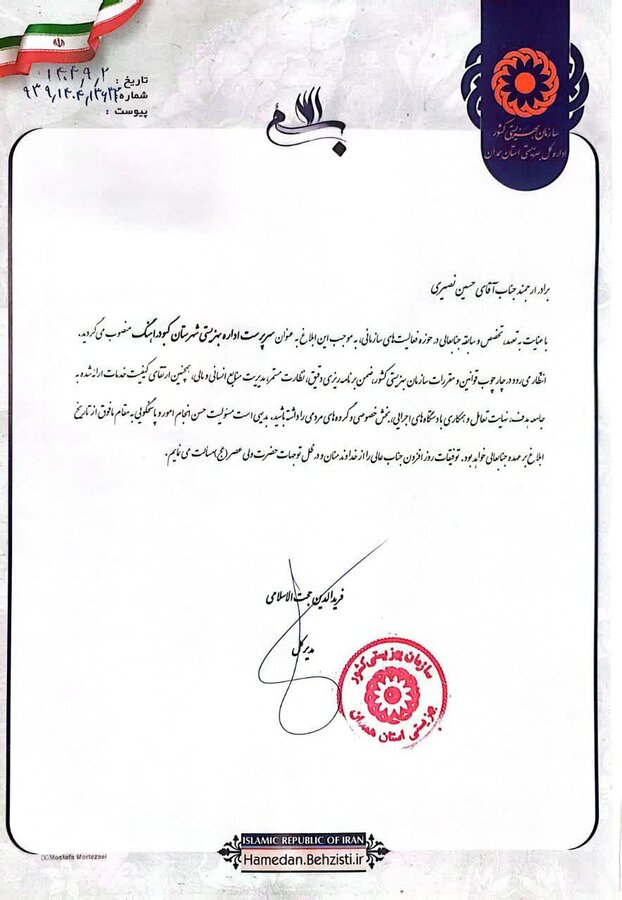 تاریخ : ۱۴۰۴,۹,۲
شماره:
پیوست :
سازمان بهزیستی کشور
اداره کل بهزیستی استان همدان
برادر ارجمند جناب آقای حسین نصیری
با عنایت به تعهد، تخصص و سابقه جنابعالی در حوزه فعالیت‌های سازمانی، به موجب این ابلاغ به عنوان سرپرست اداره بهزیستی شهرستان کبودراهنگ منصوب می گردید.
انتظار می رود در چارچوب قوانین و مقررات سازمان بهزیستی کشور، ضمن برنامه ریزی دقیق، نظارت مستمر، مدیریت منابع انسانی و مالی، همچنین ارتقای کیفیت خدمات ارائه شده به
جامعه هدف، نهایت تعامل و همکاری با دستگاه‌های اجرایی، بخش خصوصی و گروه‌های مردمی را داشته باشید. بدیهی است مسئولیت حسن انجام امور و پاسخگویی به مقام مافوق از تاریخ
ابلاغ بر عهده جنابعالی خواهد بود. توفیقات روز افزون جناب عالی را از خداوند منان و در ظل توجهات حضرت ولی عصر (عج) مسألت می نمایم.
فریدالدین حجت الاسلامی
مدیرکل
سازمان بهزیستی کشور
بهزیستی استان همدان
ISLAMIC REPUBLIC OF IRAN
Hamedan.Behzisti.ir
Mostafa Mortezaei